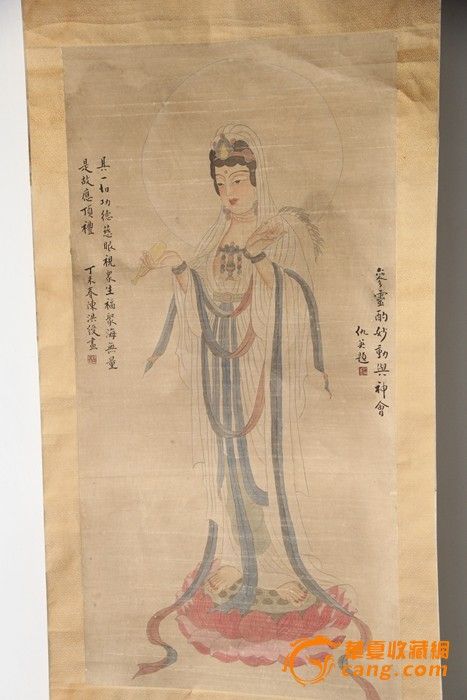 具一切功德慈眼視衆生福聚海無量
是故應頂禮
丁未春陳洪俊畫
參靈酌妙動與神會
仇英題
華夏收藏網
cang.com